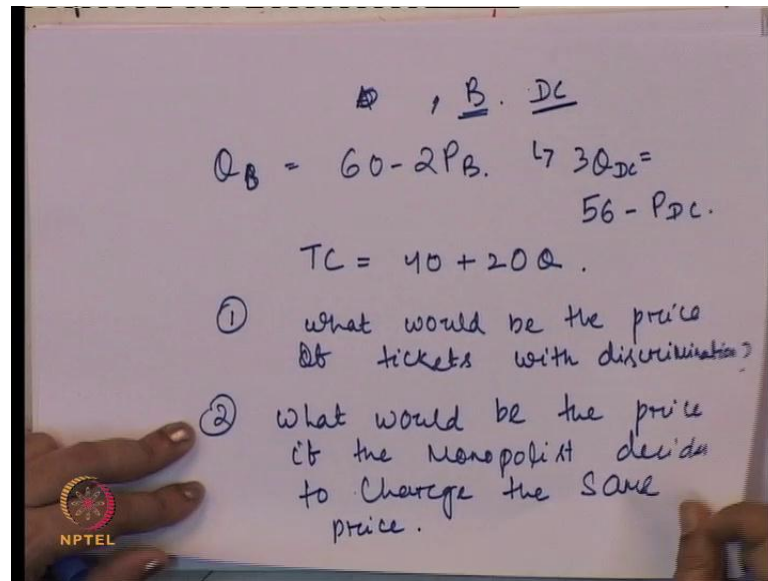 , B. DC
Q_B = 60 - 2P_B. ↳ 3Q_DC =
56 - P_DC.
TC = 40 + 20Q.
① what would be the price
of tickets with discrimination?
② what would be the price
if the Monopolist decide
to charge the same
price.
NPTEL